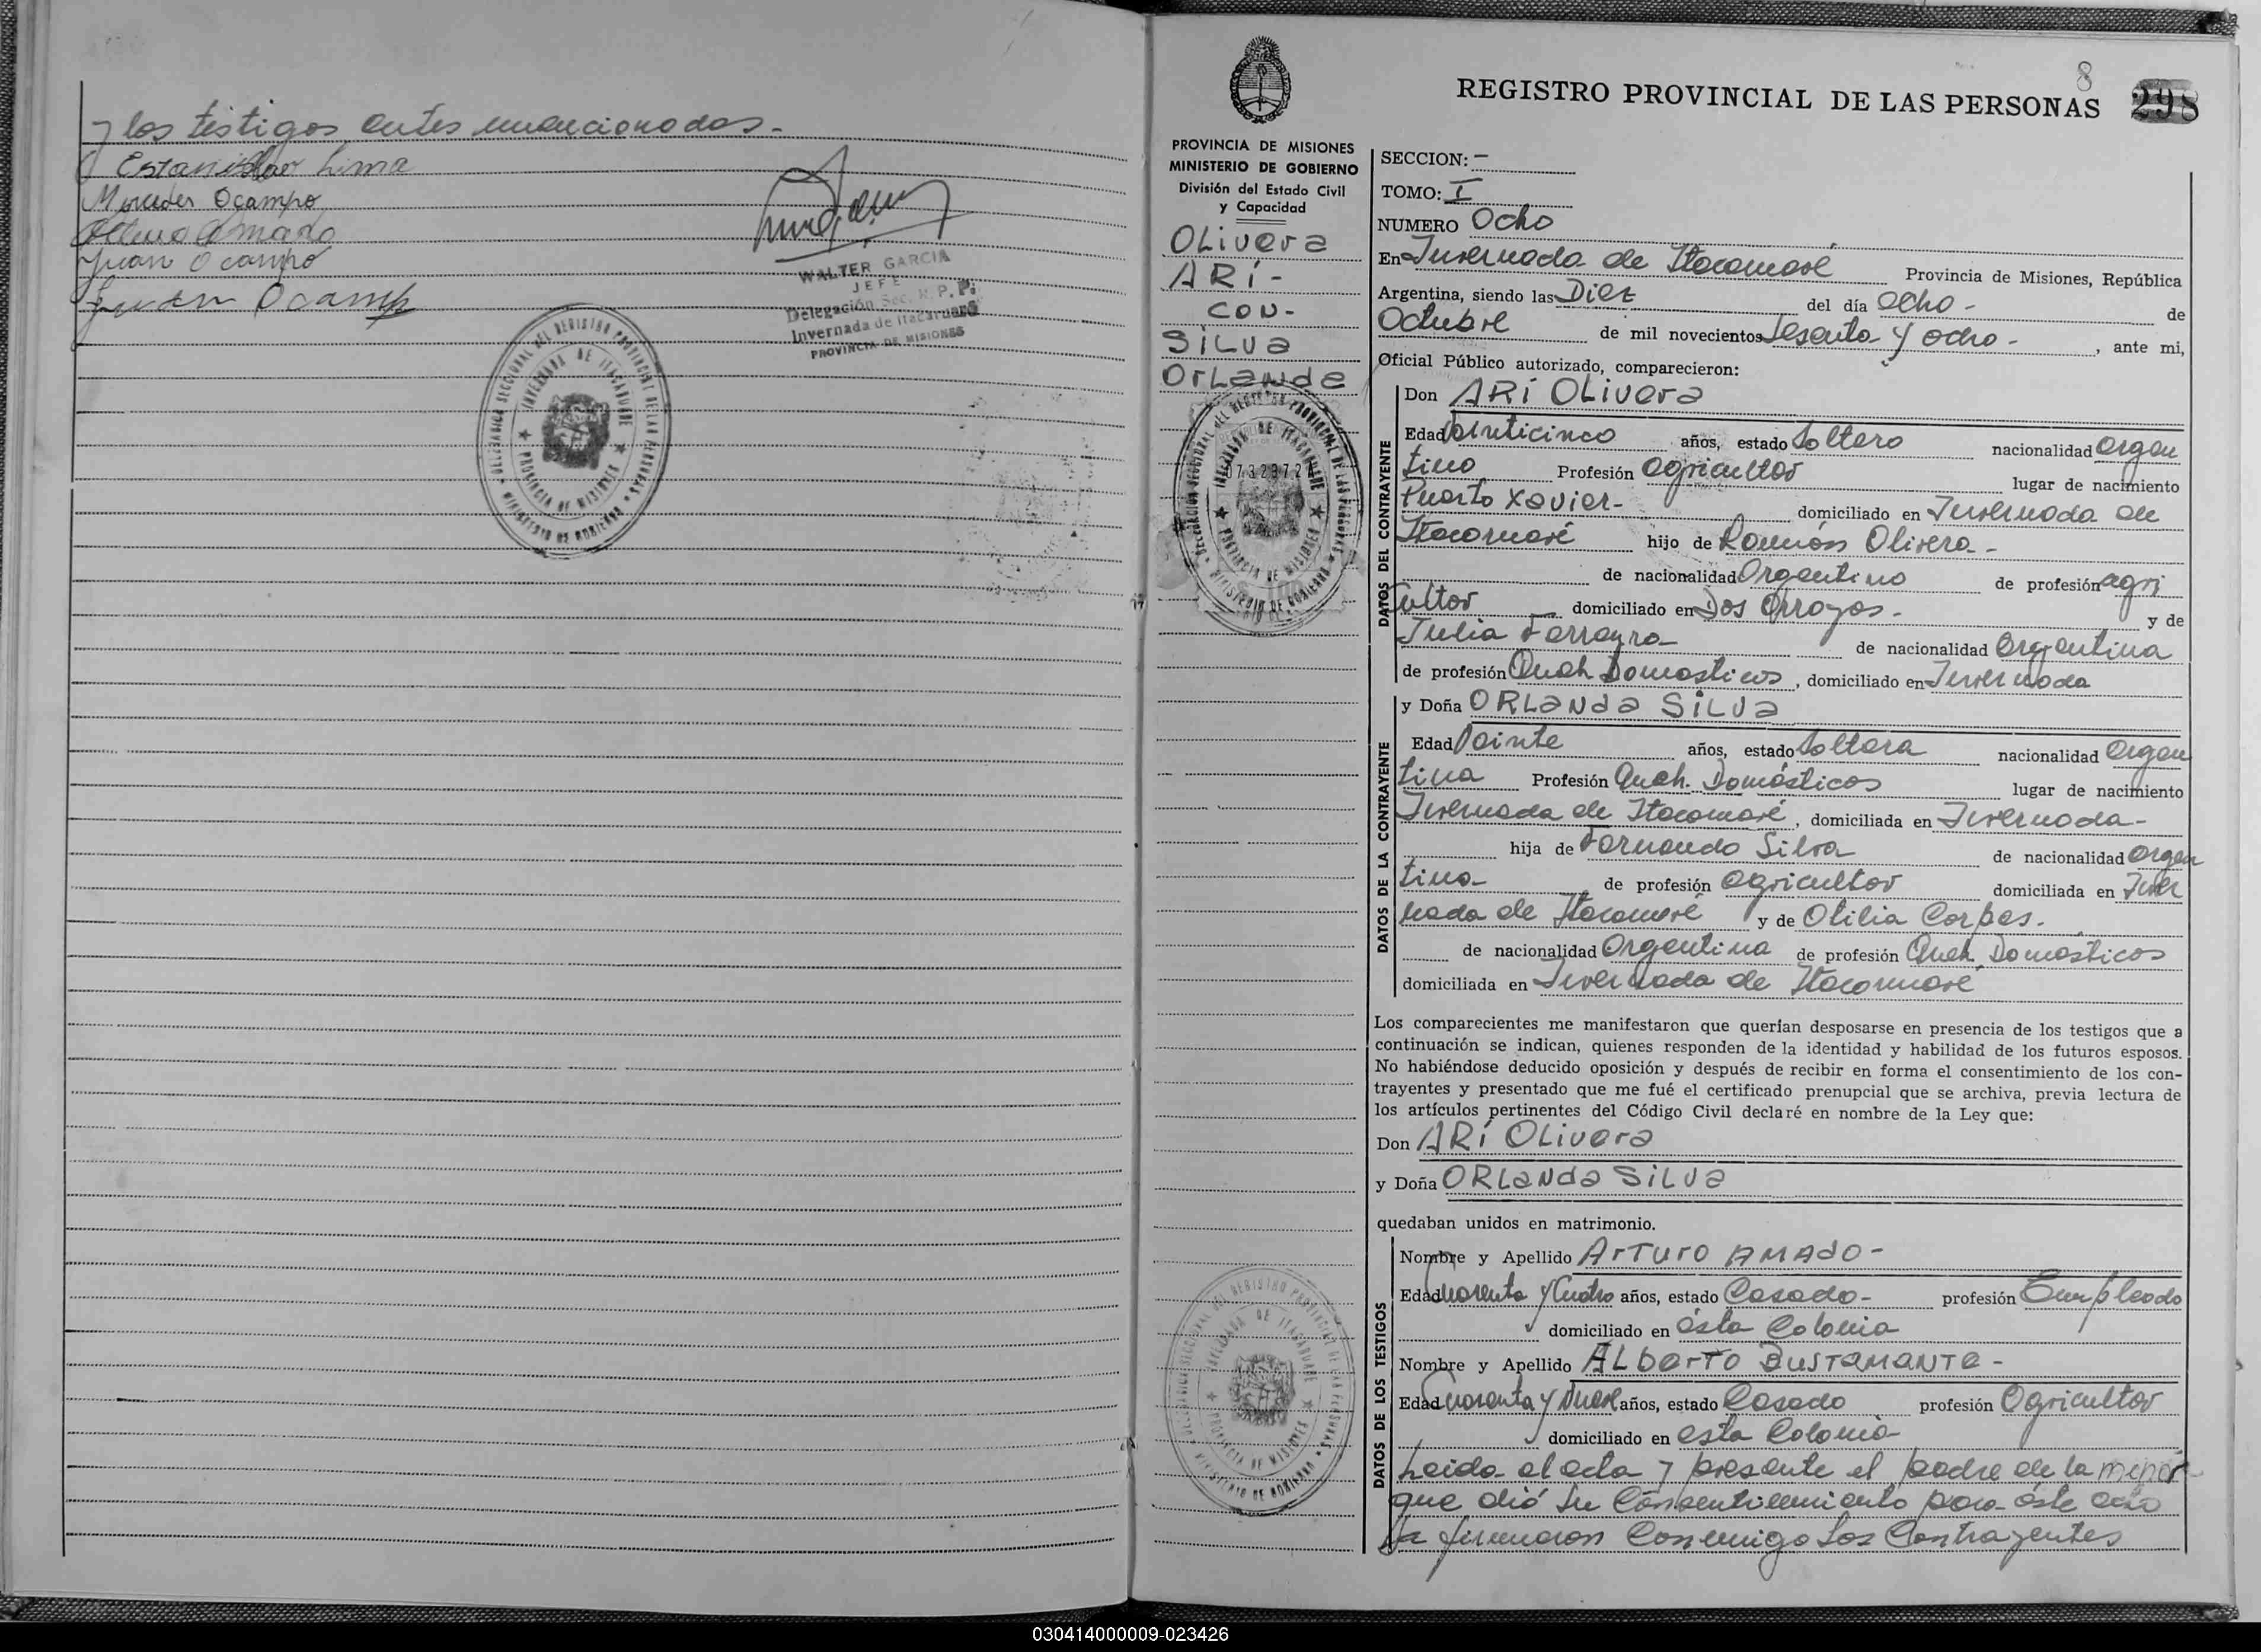 y los testigos antes mencionados.-
Estanislao Lima
Mercedes Ocampo
Amado
Juan Ocampo
Juan Ocampo
WALTER GARCIA
JEFE
Delegación Sec. R. P. P.
Invernada de Itacaruaré
PROVINCIA DE MISIONES
DELEGACION SECCIONAL DEL REGISTRO PROVINCIAL DE LAS PERSONAS
INVERNADA DE ITACARUARE
PROVINCIA DE MISIONES
MINISTERIO DE GOBIERNO
8
REGISTRO PROVINCIAL DE LAS PERSONAS 298
PROVINCIA DE MISIONES
MINISTERIO DE GOBIERNO
División del Estado Civil
y Capacidad
Olivera
ARÍ-
CON-
SILVA
Orlanda
DELEGACION SECCIONAL DEL REGISTRO PROVINCIAL DE LAS PERSONAS
INVERNADA DE ITACARUARE
PROVINCIA DE MISIONES
MINISTERIO DE GOBIERNO
SECCION: -
TOMO: I
NUMERO Ocho
En Invernada de Itacaruaré Provincia de Misiones, República
Argentina, siendo las Diez del día ocho - de
Octubre de mil novecientos Sesenta y ocho - , ante mi,
Oficial Público autorizado, comparecieron:
DATOS DEL CONTRAYENTE
Don ARÍ OLIVERA
Edad Veinticinco años, estado Soltero nacionalidad Argen
tino Profesión agricultor lugar de nacimiento
Puerto Xavier- domiciliado en Invernada de
Itacaruaré hijo de Ramón Olivera -
de nacionalidad Argentino de profesión agri
cultor domiciliado en Dos Arroyos. y de
Julia Ferreyra de nacionalidad Argentina
de profesión Queh Domesticos , domiciliado en Invernada
DATOS DE LA CONTRAYENTE
y Doña ORLANDA SILVA
Edad Veinte años, estado Soltera nacionalidad Argen
tina Profesión Queh. Domésticos lugar de nacimiento
Invernada de Itacaruaré , domiciliada en Invernada-
hija de Fernando Silva de nacionalidad Argen
tina de profesión agricultor domiciliada en Inver
nada de Itacaruaré y de Otilia Corpes.
de nacionalidad Argentina de profesión Queh. Domésticos
domiciliada en Invernada de Itacaruaré
Los comparecientes me manifestaron que querían desposarse en presencia de los testigos que a
continuación se indican, quienes responden de la identidad y habilidad de los futuros esposos.
No habiéndose deducido oposición y después de recibir en forma el consentimiento de los con-
trayentes y presentado que me fué el certificado prenupcial que se archiva, previa lectura de
los artículos pertinentes del Código Civil declaré en nombre de la Ley que:
Don ARÍ OLIVERA
y Doña ORLANDA SILVA
quedaban unidos en matrimonio.
DATOS DE LOS TESTIGOS
Nombre y Apellido ARTURO AMADO -
Edad Cuarenta y Cuatro años, estado Casado- profesión Empleado
domiciliado en ésta Colonia
Nombre y Apellido ALBERTO BUSTAMANTE -
Edad Cuarenta y Nueve años, estado Casado profesión Agricultor
domiciliado en esta Colonia
Leida el acta y presente el padre de la menor
que dió su Consentimiento para éste acto
la firmaron Conmigo los Contrayentes
DELEGACION SECCIONAL DEL REGISTRO PROVINCIAL DE LAS PERSONAS
INVERNADA DE ITACARUARE
PROVINCIA DE MISIONES
MINISTERIO DE GOBIERNO
030414000009-023426